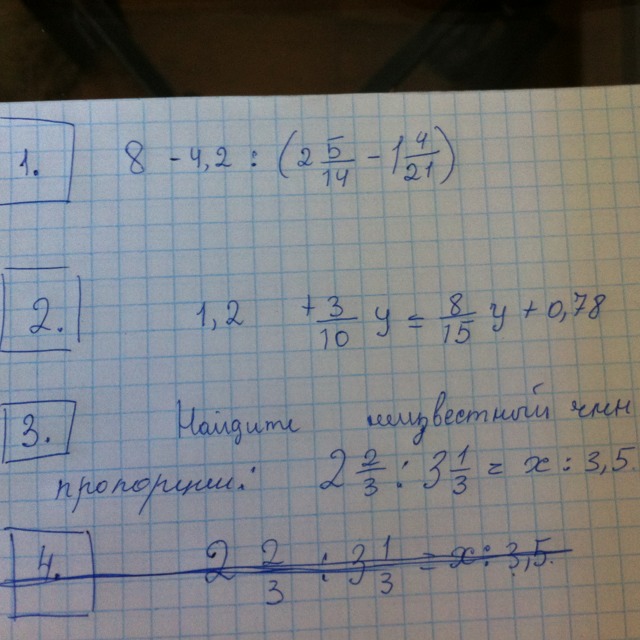 1. 8 - 4,2 : (2 5/14 - 1 4/21)
2. 1,2 + 3/10 y = 8/15 y + 0,78
3. Найдите неизвестный член
пропорции: 2 2/3 : 3 1/3 = x : 3,5.
4. 2 2/3 : 3 1/3 = x : 3,5.